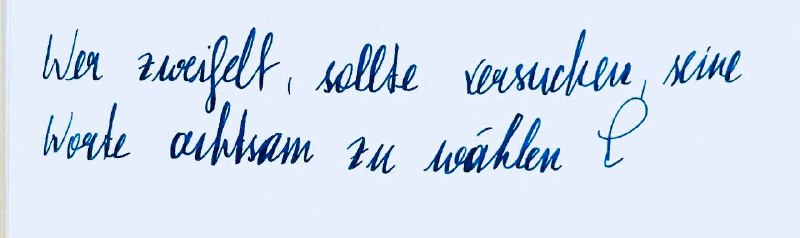 Wer zweifelt, sollte versuchen, seine
Worte achtsam zu wählen